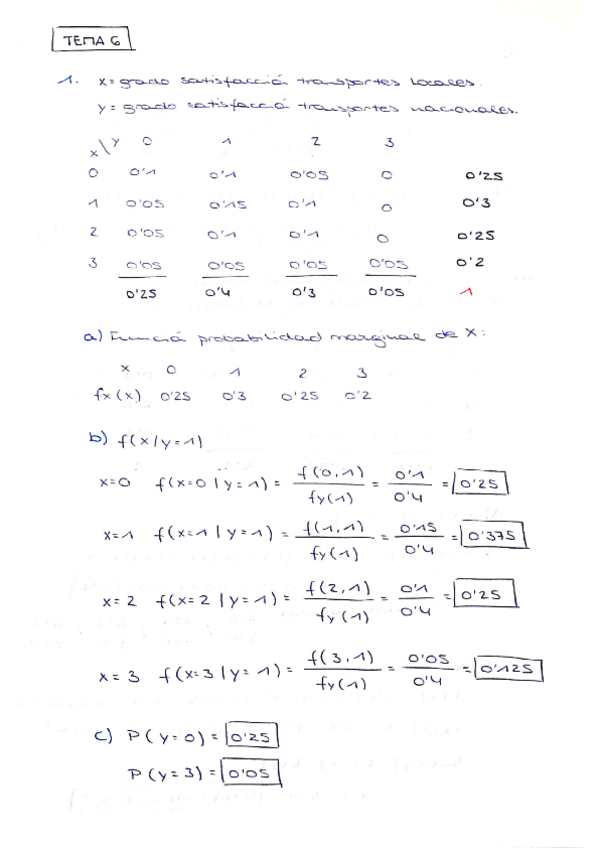 TEMA 6
1. x= grado satisfacció transportes locales.
y= grado satisfacció transportes nacionales.
x\y 0 1 2 3
0 0'1 0'1 0'05 0 0'25
1 0'05 0'15 0'1 0 0'3
2 0'05 0'1 0'1 0 0'25
3 0'05 0'05 0'05 0'05 0'2
0'25 0'4 0'3 0'05 1
a) Funció probabilidad marginal de X:
x 0 1 2 3
fx(x) 0'25 0'3 0'25 0'2
b) f(x/y=1)
x=0 f(x=0|y=1) = f(0,1)/fy(1) = 0'1/0'4 = 0'25
x=1 f(x=1|y=1) = f(1,1)/fy(1) = 0'15/0'4 = 0'375
x=2 f(x=2|y=1) = f(2,1)/fy(1) = 0'1/0'4 = 0'25
x=3 f(x=3|y=1) = f(3,1)/fy(1) = 0'05/0'4 = 0'125
c) P(y=0) = 0'25
P(y=3) = 0'05